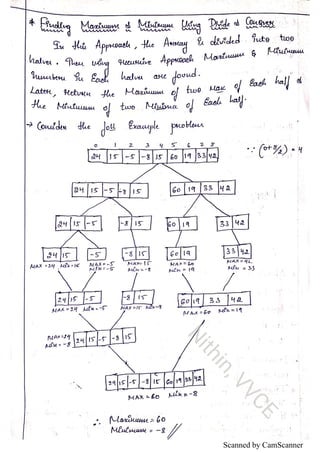 * Finding Maximum & Minimum Using Divide & Conquer
In this Approach, the Array is divided into two
halves. Then using recursive Approach Maximum & Minimum
numbers in Each halves are found.
Later, Return the Maximum of two Max of Each half &
the Minimum of two Minima of Each half.
→ Consider the foll Example problem
0 1 2 3 4 5 6 7 8
24 15 -5 -8 15 60 19 33 42
24 15 -5 -8 15 60 19 33 42
24 15 -5 -8 15 60 19 33 42
24 15 -5 -8 15 60 19 33 42
MAX=24 Min=15 MAX=-5 MAX=15 MAX=60 MAX=42
Min=-5 Min=-8 Min=19 Min=33
24 15 -5 -8 15 60 19 33 42
MAX=24 Min=-5 MAX=15 Min=-8 MAX=60 Min=19
MAX=24
Min=-8
24 15 -5 -8 15
24 15 -5 -8 15 60 19 33 42
MAX=60 Min=-8
∴ Maximum = 60
Minimum = -8 //
Nithin, VVCE
Scanned by CamScanner